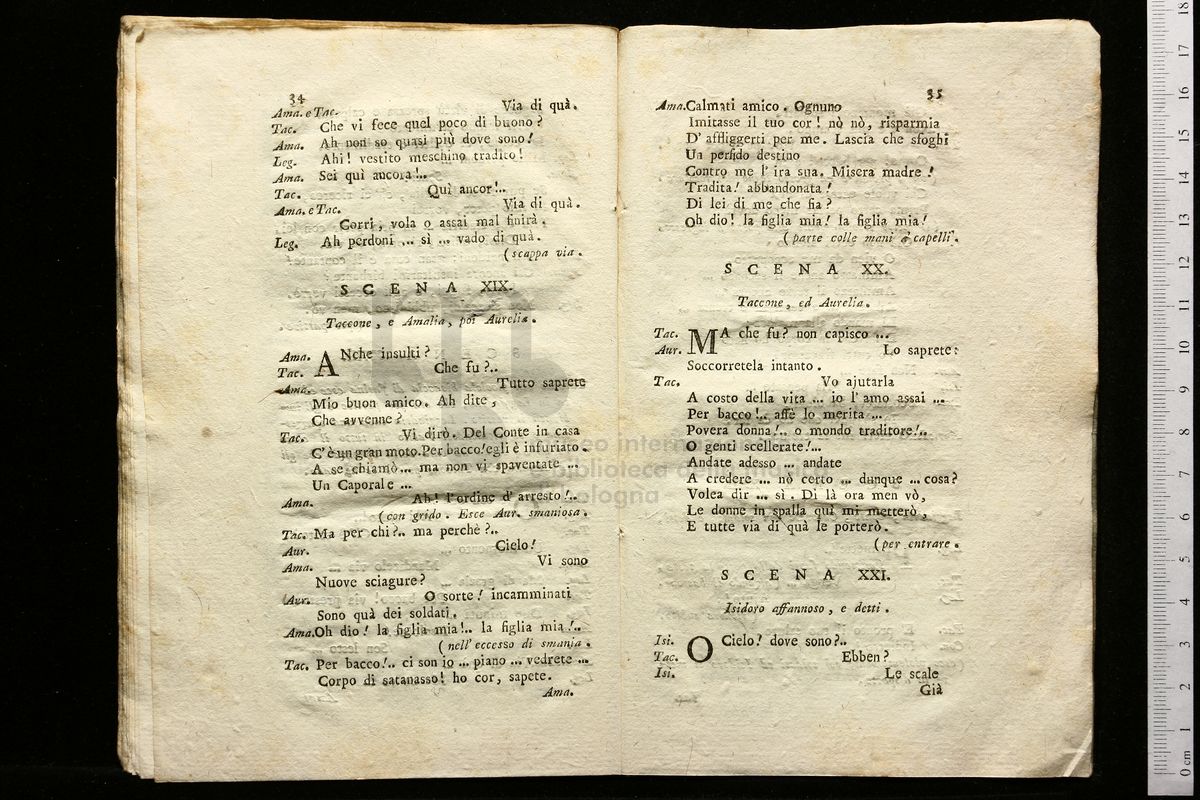 34
Ama. e Tac. Via di quà.
Tac. Che vi fece quel poco di buono?
Ama. Ah non so quasi più dove sono!
Leg. Ahi! vestito meschino tradito!
Ama. Sei quì ancora!..
Tac. Quì ancor!..
Ama. e Tac. Via di quà.
Corri, vola o assai mal finirà.
Leg. Ah perdoni ... sì ... vado di quà.
(scappa via.
SCENA XIX.
Taccone, e Amalia, poi Aurelia.
Ama. ANche insulti?
Tac. Che fu?..
Ama. Tutto saprete
Mio buon amico. Ah dite,
Che avvenne?
Tac. Vi dirò. Del Conte in casa
C'è un gran moto. Per bacco! egli è infuriato.
A se chiamò ... ma non vi spaventate ...
Un Caporale ...
Ama. Ah! l'ordine d'arresto!..
(con grido. Esce Aur. smaniosa.
Tac. Ma per chi?.. ma perchè?..
Aur. Cielo!
Ama. Vi sono
Nuove sciagure?
Aur. O sorte! incamminati
Sono quà dei soldati.
Ama. Oh dio! la figlia mia!.. la figlia mia!..
(nell'eccesso di smania.
Tac. Per bacco!.. ci son io ... piano ... vedrete ...
Corpo di satanasso! ho cor, sapete.
Ama.
35
Ama. Calmati amico. Ognuno
Imitasse il tuo cor! nò nò, risparmia
D'affliggerti per me. Lascia che sfoghi
Un perfido destino
Contro me l'ira sua. Misera madre!
Tradita! abbandonata!
Di lei di me che fia?
Oh dio! la figlia mia! la figlia mia!
(parte colle mani a' capelli.
SCENA XX.
Taccone, ed Aurelia.
Tac. MA che fu? non capisco ...
Aur. Lo saprete:
Soccorretela intanto.
Tac. Vo ajutarla
A costo della vita ... io l'amo assai ...
Per bacco!.. affè lo merita ...
Povera donna!.. o mondo traditore!..
O genti scellerate!...
Andate adesso ... andate
A credere ... nò certo ... dunque ... cosa?
Volea dir ... sì. Di là ora men vò,
Le donne in spalla quì mi metterò,
E tutte via di quà le porterò.
(per entrare.
SCENA XXI.
Isidoro affannoso, e detti.
Isi. O Cielo! dove sono?..
Tac. Ebben?
Isi. Le scale
Già